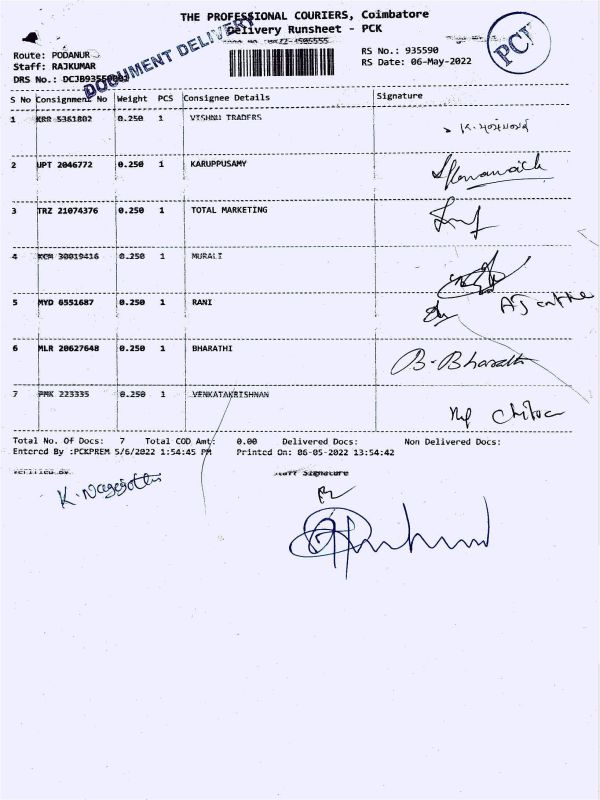 THE PROFESSIONAL COURIERS, Coimbatore
Delivery Runsheet - PCK
DOCUMENT DELIVERY
PCK
Route: PODANUR
Staff: RAJKUMAR
RS No.: 935590
RS Date: 06-May-2022
S No Consignment No Weight PCS Consignee Details Signature
1 KRR 5361802 0.250 1 VISHNU TRADERS
2 UPT 2046772 0.250 1 KARUPPUSAMY
3 TRZ 21074376 0.250 1 TOTAL MARKETING
4 KCM 30019416 0.250 1 MURALI
5 MYD 6551687 0.250 1 RANI
6 MLR 20627648 0.250 1 BHARATHI B. Bharathi
7 PMK 223335 0.250 1 VENKATAKRISHNAN
Total No. Of Docs: 7 Total COD Amt: 0.00 Delivered Docs: Non Delivered Docs:
Entered By :PCKPREM 5/6/2022 1:54:45 PM Printed On: 06-05-2022 13:54:42
Verified By Staff Signature